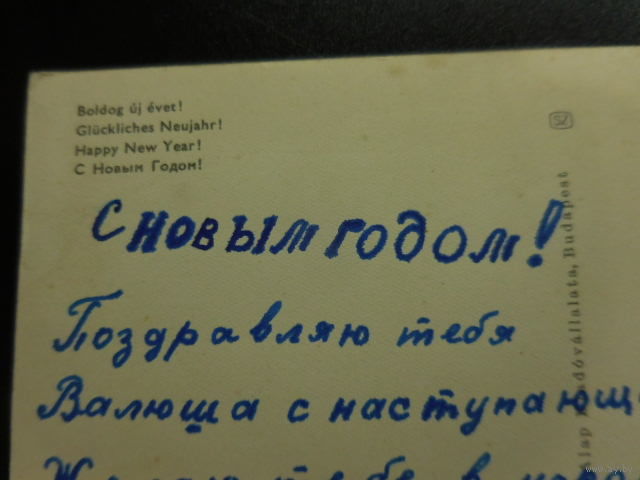 Boldog új évet!
Glückliches Neujahr!
Happy New Year!
С Новым Годом!
С НОВЫМ ГОДОМ!
Поздравляю тебя
Валюша с наступающ
тебе в
Budapest